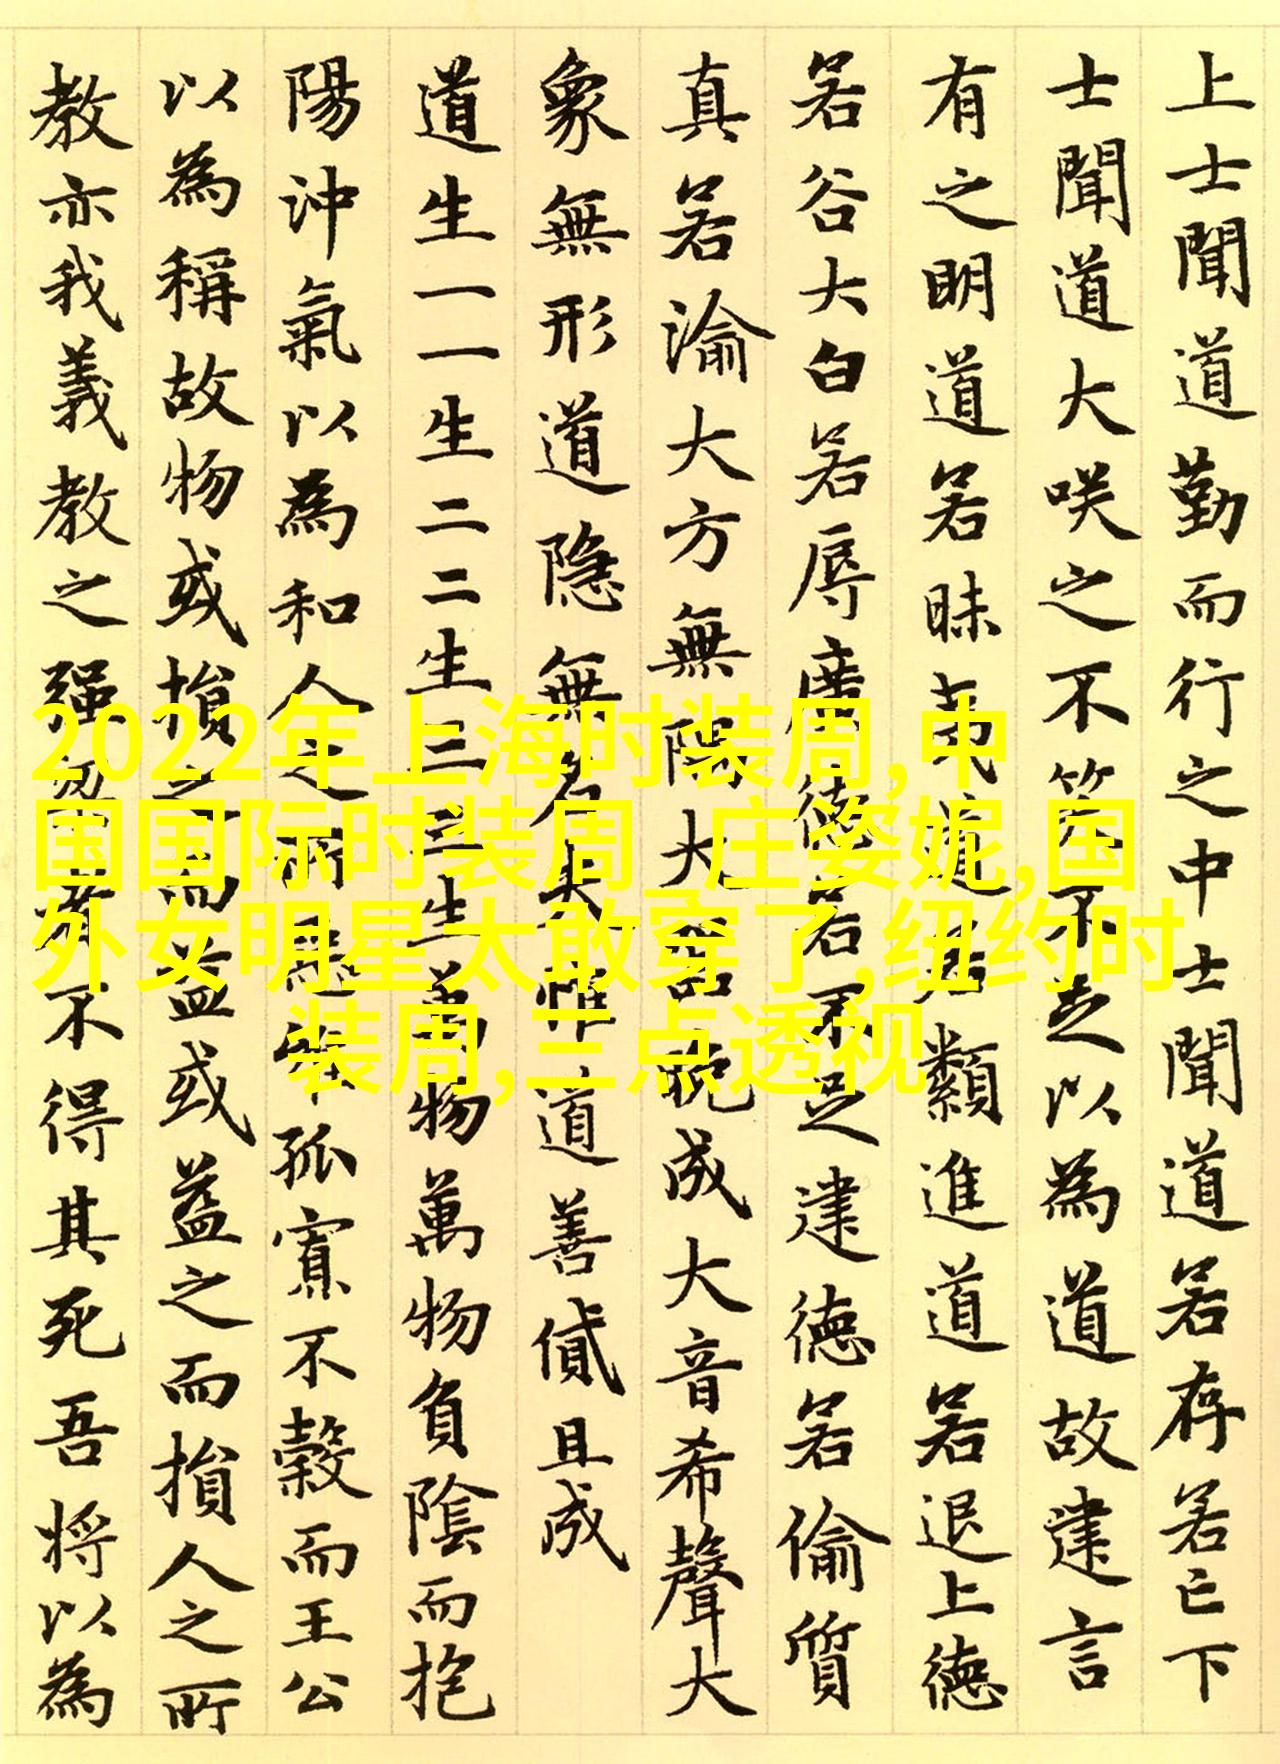 上士聞道勤而行之中士聞道若存若亡下
士聞道大咲之不笑不足以為道故建言
有之明道若昧夷道若類進道若退上德
若谷大白若辱廣德若不足建德若偷質
真若渝大方無隅大器晚成大音希聲大
象無形道隐無名夫惟道善貸且成
道生一一生二二生三三生萬物萬物負陰而抱
陽沖氣以為和人之所惡唯孤寡不穀而王公
以為稱故物或損之而益或益之而損人之所
教亦我義教之强梁者不得其死吾将以為
2022年上海时装周,中
国国际时装周_庄姿妮,国
外女明星太敢穿了,纽约时
装周,三点透视